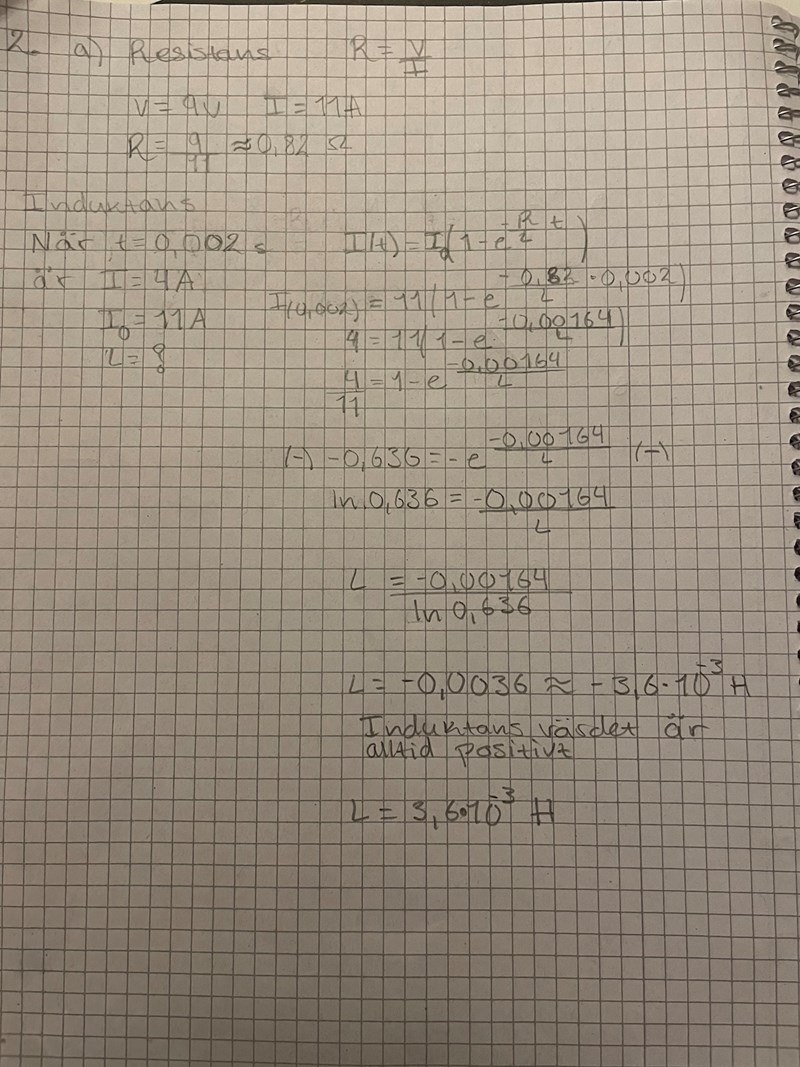 2. a) Resistans R = V/I
V = 9V I = 11A
R = 9/11 ≈ 0,82 Ω
Induktans
När t = 0,002 s I(t) = I₀(1-e^(-R/L t))
är I = 4A
I(0,002) = 11(1-e^(-0,82/L · 0,002))
I₀ = 11A
4 = 11(1-e^(-0,00164/L))
L = ?
4/11 = 1-e^(-0,00164/L)
(-) -0,636 = -e^(-0,00164/L) (-)
ln 0,636 = -0,00164/L
L = -0,00164/ln 0,636
L = -0,0036 ≈ -3,6·10⁻³ H
Induktans värdet är
alltid positivt
L = 3,6·10⁻³ H